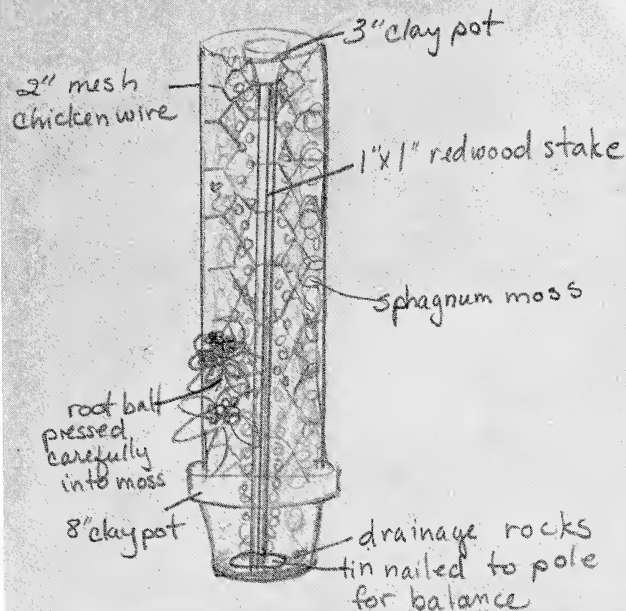 3" clay pot
2" mesh
chicken wire
1"x1" redwood stake
sphagnum moss
root ball
pressed
carefully
into moss
8" clay pot
drainage rocks
tin nailed to pole
for balance